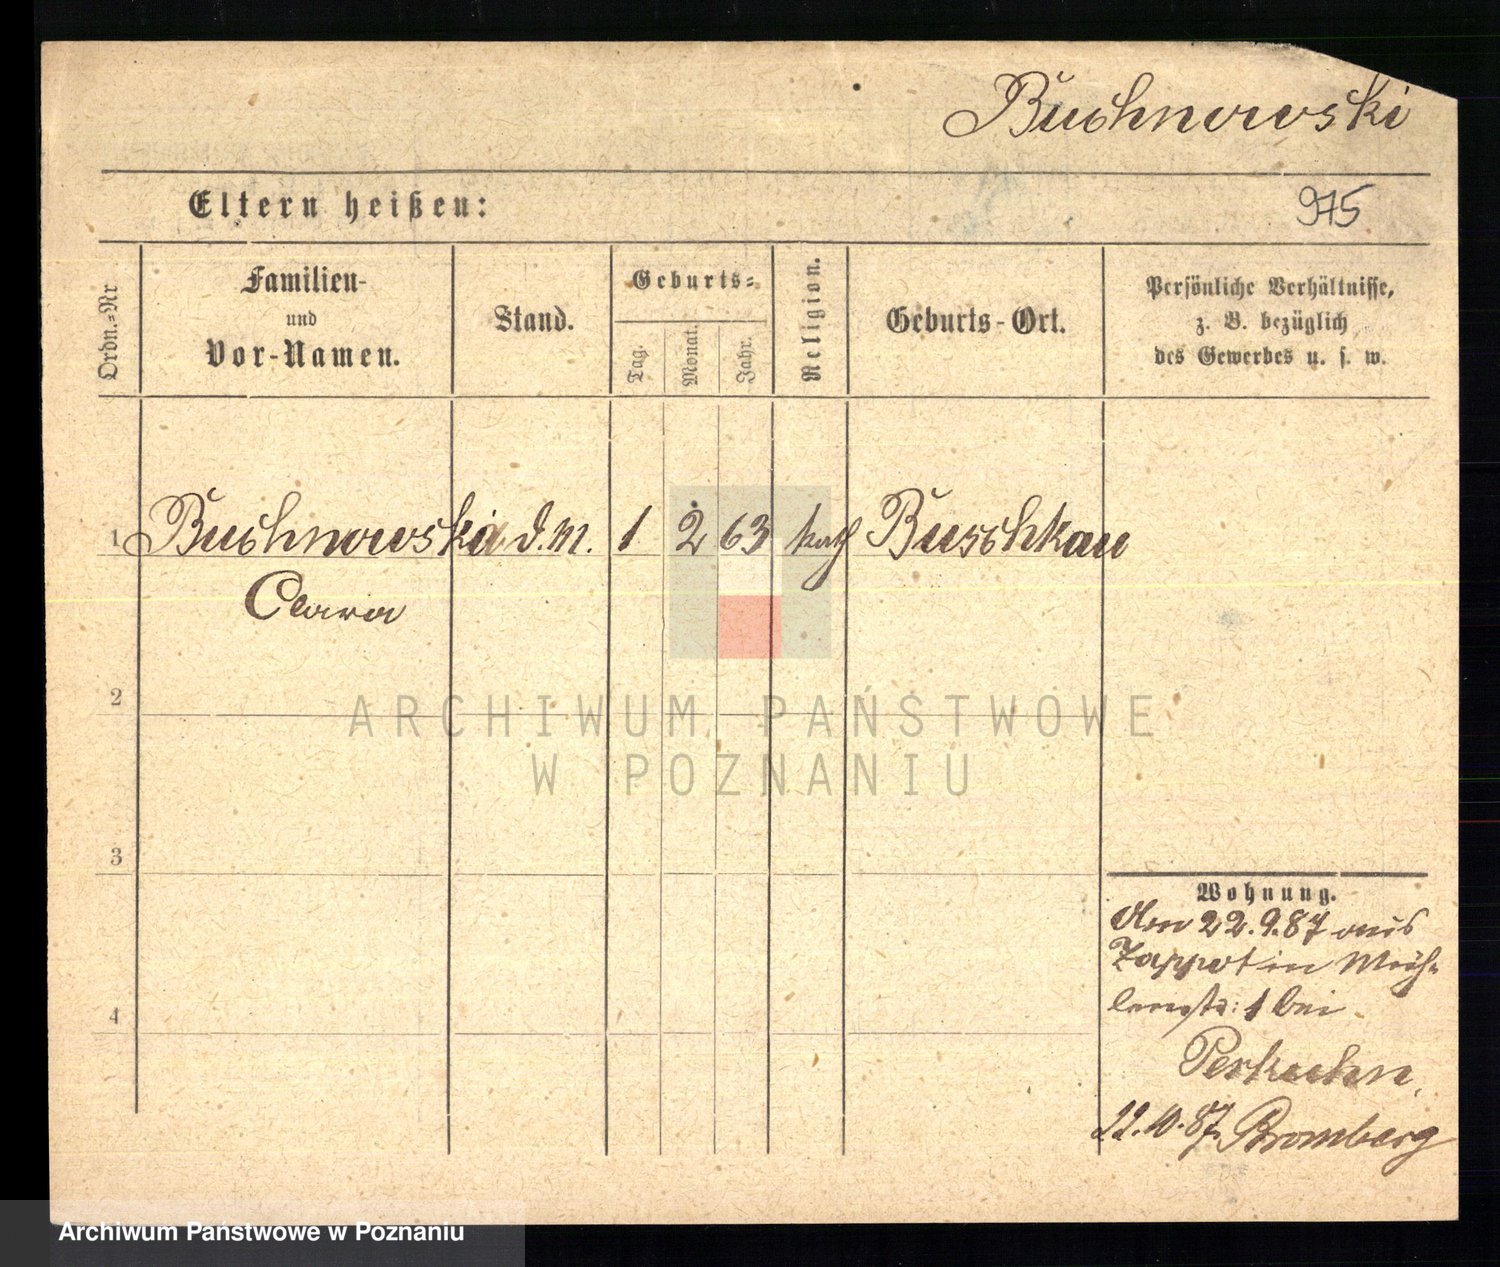 Buchnowski
Eltern heißen:
975
Ordn.=Nr
Familien-
und
Vor-Namen.
Stand.
Geburts=
Tag.
Monat.
Jahr.
Religion.
Geburts-Ort.
Persönliche Verhältnisse,
z. B. bezüglich
des Gewerbes u. s. w.
1 Buchnowski d.M. 1 2 63 kath Buschkau
Clara
2
3
4
Wohnung.
Am 22.9.87 aus
Zappot in Müh-
lenstr: 1 bei
Perkuhn,
22.10.87. Bromberg
ARCHIWUM PAŃSTWOWE
W POZNANIU
Archiwum Państwowe w Poznaniu